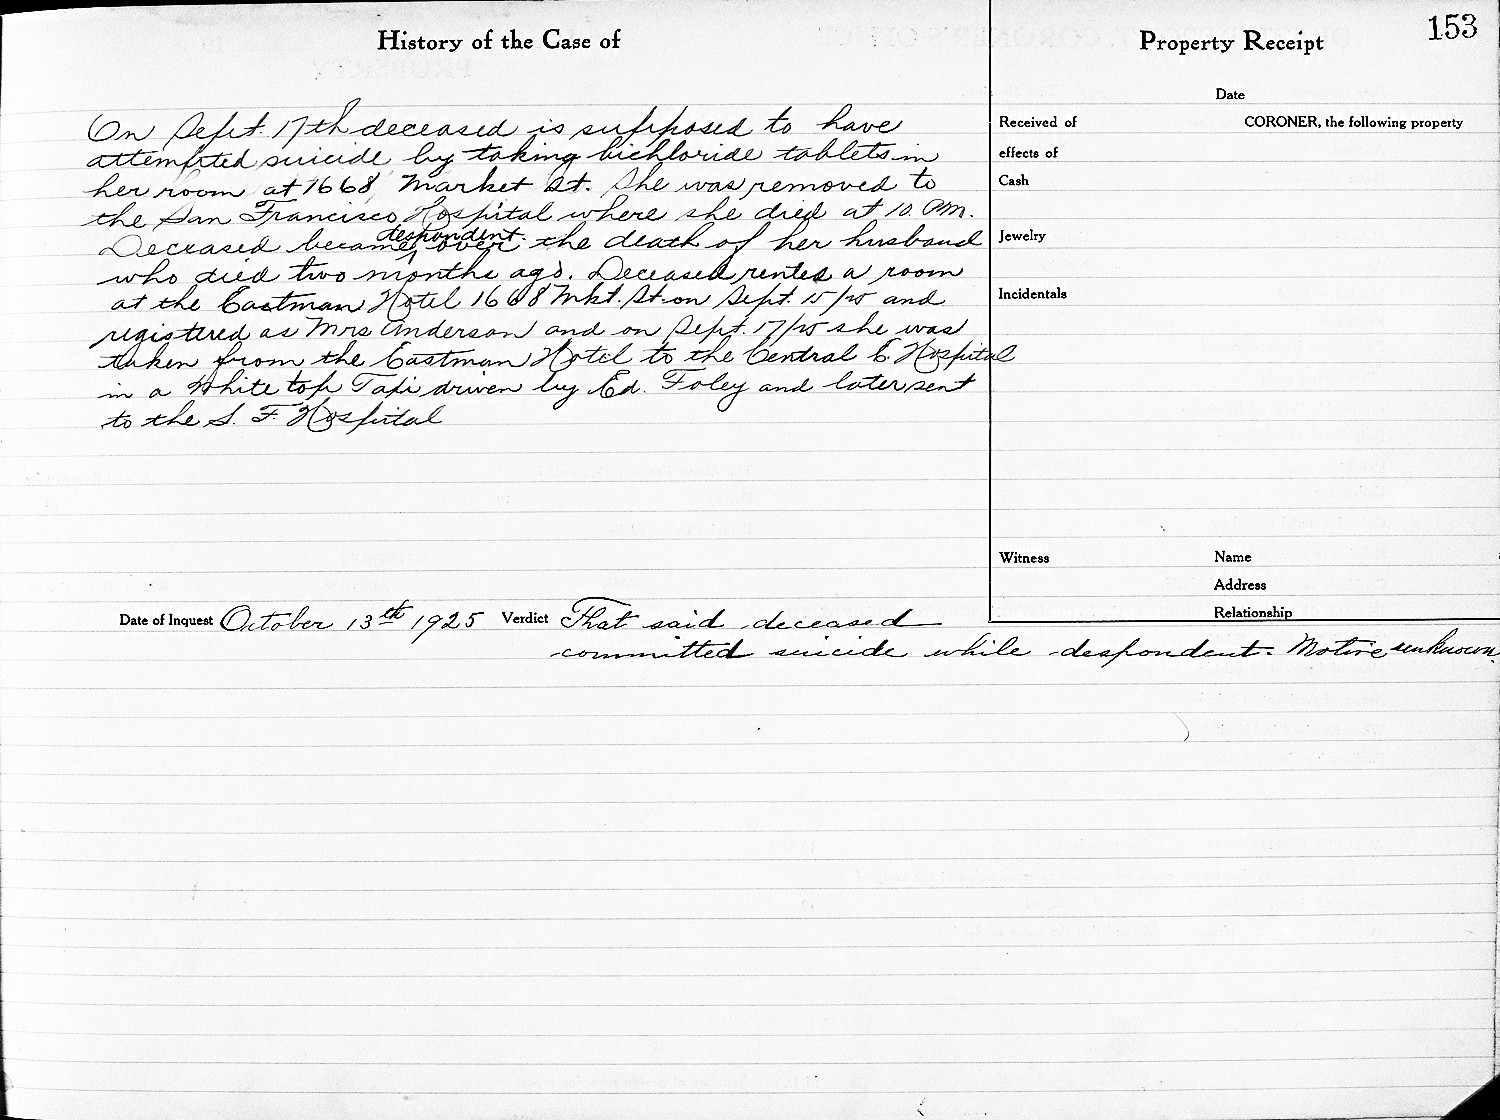 153
History of the Case of
On Sept. 17th deceased is supposed to have
attempted suicide by taking bichloride tablets in
her room at 1668 Market St. She was removed to
the San Francisco Hospital where she died at 10. P.M.
Deceased became despondent over the death of her husband
who died two months ago. Deceased rented a room
at the Eastman Hotel 1668 Mkt. St on Sept. 15/25 and
registered as Mrs Anderson and on Sept. 17/25 she was
taken from the Eastman Hotel to the Central E. Hospital
in a White top Taxi driven by Ed. Foley and later sent
to the S. F. Hospital
Date of Inquest October 13th 1925 Verdict That said deceased
committed suicide while despondent. Motive unknown.
Property Receipt
Date
Received of CORONER, the following property
effects of
Cash
Jewelry
Incidentals
Witness Name
Address
Relationship